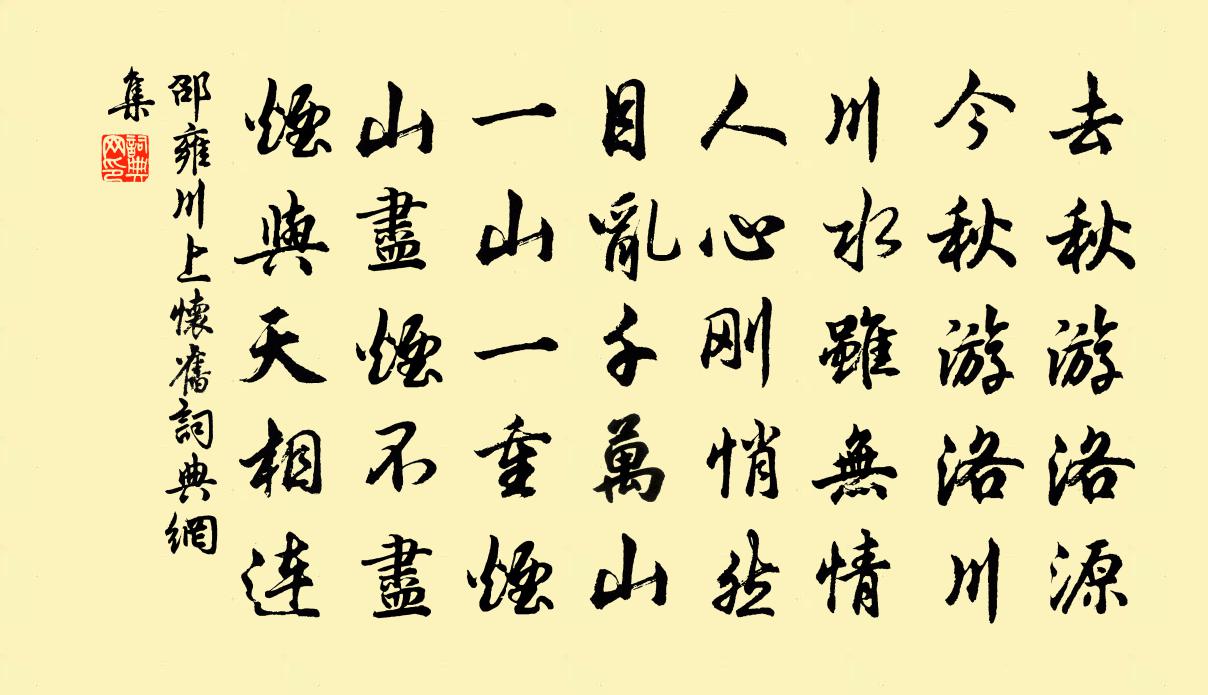 去秋游洛源
今秋游洛川
川水雖無情
人心刚悄然
目亂千萬山
一山一重煙
山盡煙不盡
煙與天相連
邵雍川上懷舊詞典網
集
詞典網印